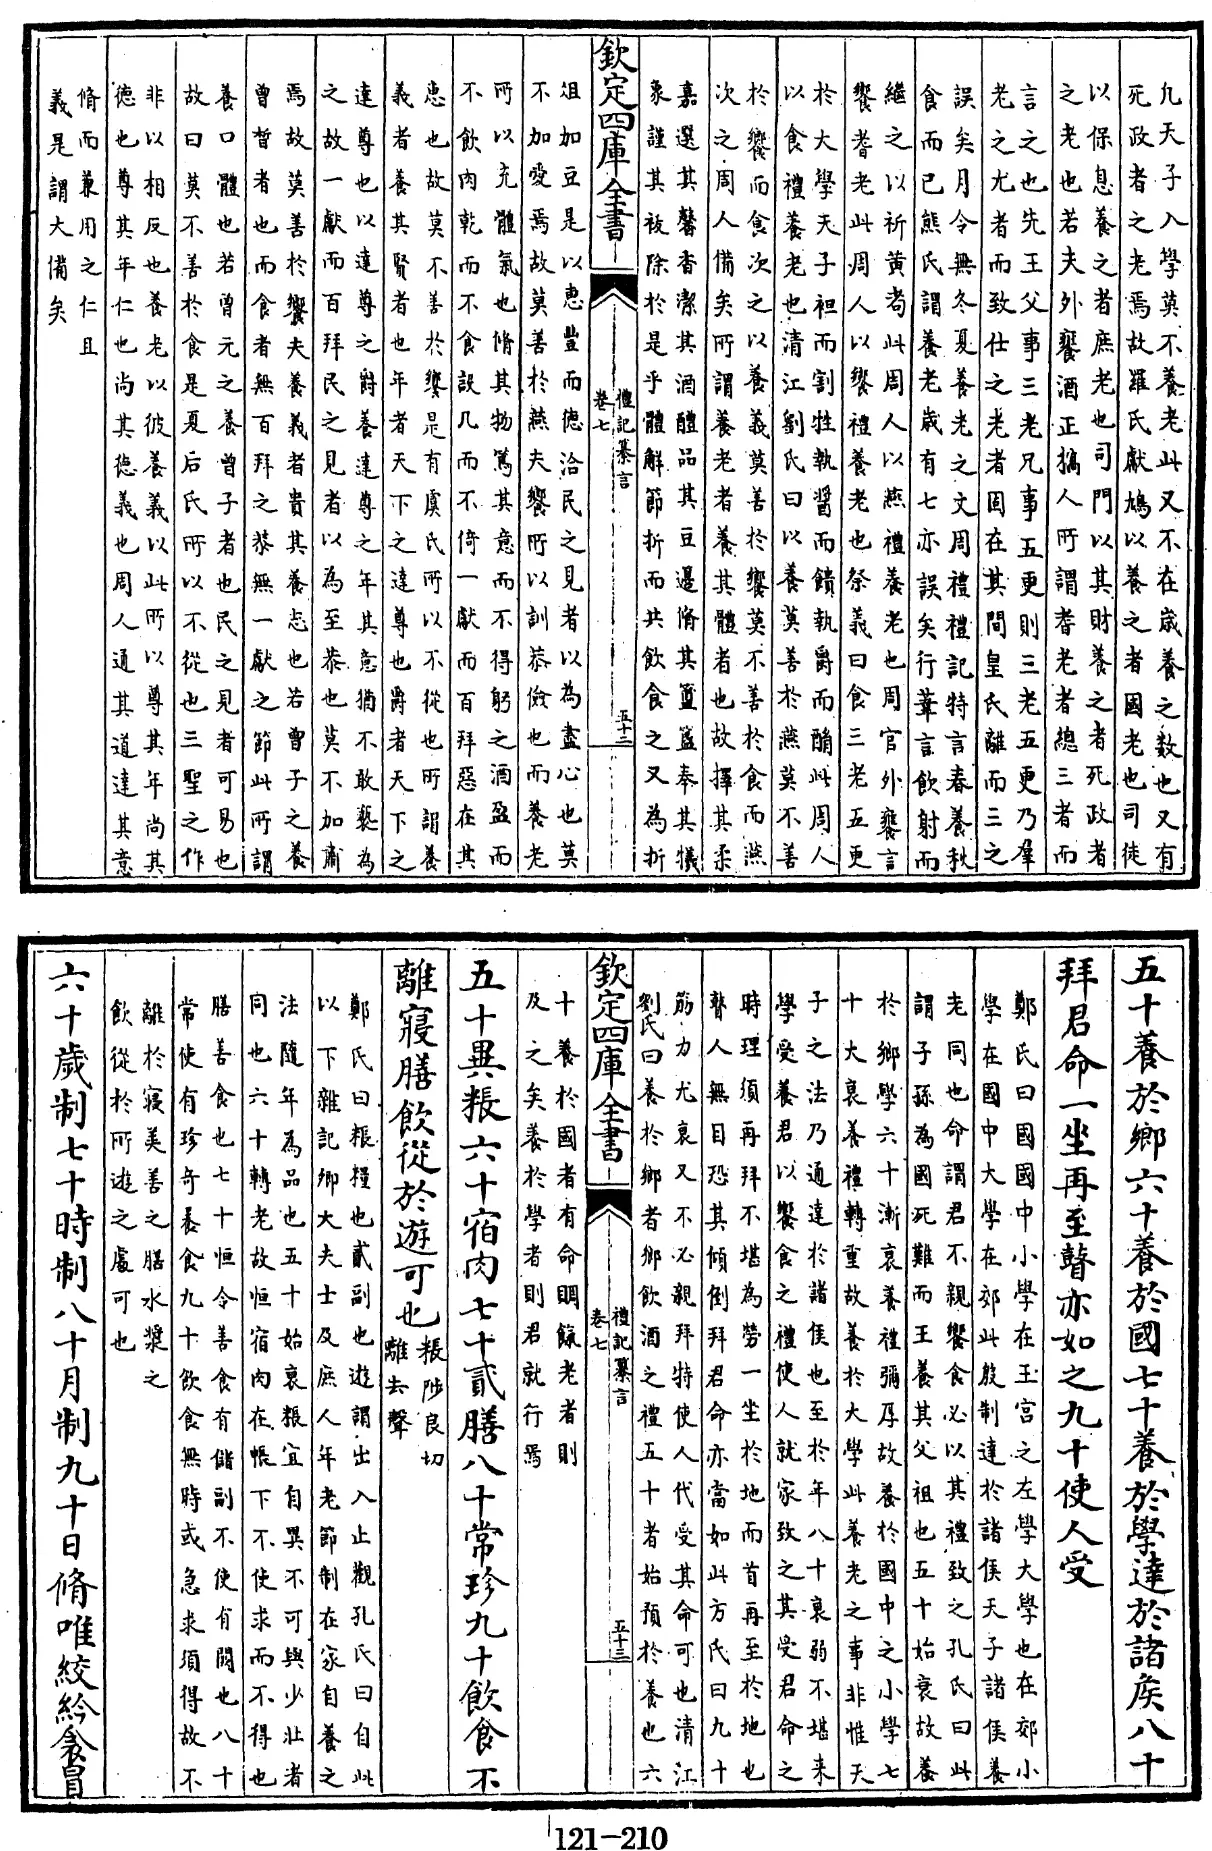 九天子入學莫不養老此又不在歲養之數也又有
死政者之老焉故羅氏獻鳩以養之者國老也司徒
以保息養之者庶老也司門以其財養之者死政者
之老也若夫外饔酒正槁人所謂耆老者總三者而
言之也先王父事三老兄事五更則三老五更乃羣
老之尤者而致仕之老者固在其間皇氏離而三之
誤矣月令無冬夏養老之文周禮禮記特言春養秋
食而已熊氏謂養老歲有七亦誤矣行葦言飲射而
繼之以祈黃耇此周人以燕禮養老也周官外饔言
饗耆老此周人以饗禮養老也祭義曰食三老五更
於大學天子袒而割牲執醬而饋執爵而酳此周人
以食禮養老也清江劉氏曰以養莫善於燕莫不善
於饗而食次之以養義莫善於饗莫不善於食而燕
次之周人備矣所謂養老者養其體者也故擇其柔
嘉選其馨香潔其酒醴品其豆籩脩其簠簋奉其犧
象謹其祓除於是乎體解節折而共飲食之又為折
欽定四庫全書
禮記纂言
卷七
五十二
俎加豆是以惠豈而德洽民之見者以為盡心也莫
不加愛焉故莫善於燕夫饗所以訓恭儉也而養老
所以充體氣也脩其物篤其意而不得躬之酒盈而
不飲肉乾而不食設几而不倚一獻而百拜惡在其
惠也故莫不善於饗是有虞氏所以不從也所謂養
義者養其賢者也年者天下之達尊也爵者天下之
達尊也以達尊之爵養達尊之年其意猶不敢褻為
之故一獻而百拜民之見者以為至恭也莫不加肅
焉故莫善於饗夫養義者貴其養志也若曾子之養
曾晳者也而食者無百拜之恭無一獻之節此所謂
養口體也若曾元之養曾子者也民之見者可易也
故曰莫不善於食是夏后氏所以不從也三聖之作
非以相反也養老以彼養義以此所以尊其年尚其
德也尊其年仁也尚其德義也周人通其道達其意
脩而兼用之仁且
義是謂大備矣
五十養於鄉六十養於國七十養於學達於諸侯八十
拜君命一坐再至瞽亦如之九十使人受
鄭氏曰國國中小學在王宮之左學大學也在郊小
學在國中大學在郊此殷制達於諸侯天子諸侯養
老同也命謂君不親饗食必以其禮致之孔氏曰此
謂子孫為國死難而王養其父祖也五十始衰故養
於鄉學六十漸衰養禮彌厚故養於國中之小學七
十大衰養禮轉重故養於大學此養老之事非惟天
子之法乃通達於諸侯也至於年八十衰弱不堪來
學受養君以饗食之禮使人就家致之其受君命之
時理須再拜不堪為勞一坐於地而首再至於地也
瞽人無目恐其傾倒拜君命亦當如此方氏曰九十
筋力尤衰又不必親拜特使人代受其命可也清江
劉氏曰養於鄉者鄉飲酒之禮五十者始預於養也六
欽定四庫全書
禮記纂言
卷七
五十三
十養於國者有命賜餼老者則
及之矣養於學者則君就行焉
五十異粻六十宿肉七十貳膳八十常珍九十飲食不
離寢膳飲從於遊可也
粻陟良切
離去聲
鄭氏曰粻糧也貳副也遊謂出入止觀孔氏曰自此
以下雜記卿大夫士及庶人年老節制在家自養之
法隨年為品也五十始衰粻宜自異不可與少壯者
同也六十轉老故恒宿肉在帳下不使求而不得也
膳善食也七十恒令善食有儲副不使有闕也八十
常使有珍奇養食九十飲食無時或急求須得故不
離於寢美善之膳水漿之
飲從於所遊之處可也
六十歲制七十時制八十月制九十日脩唯絞紟衾冒
121-210